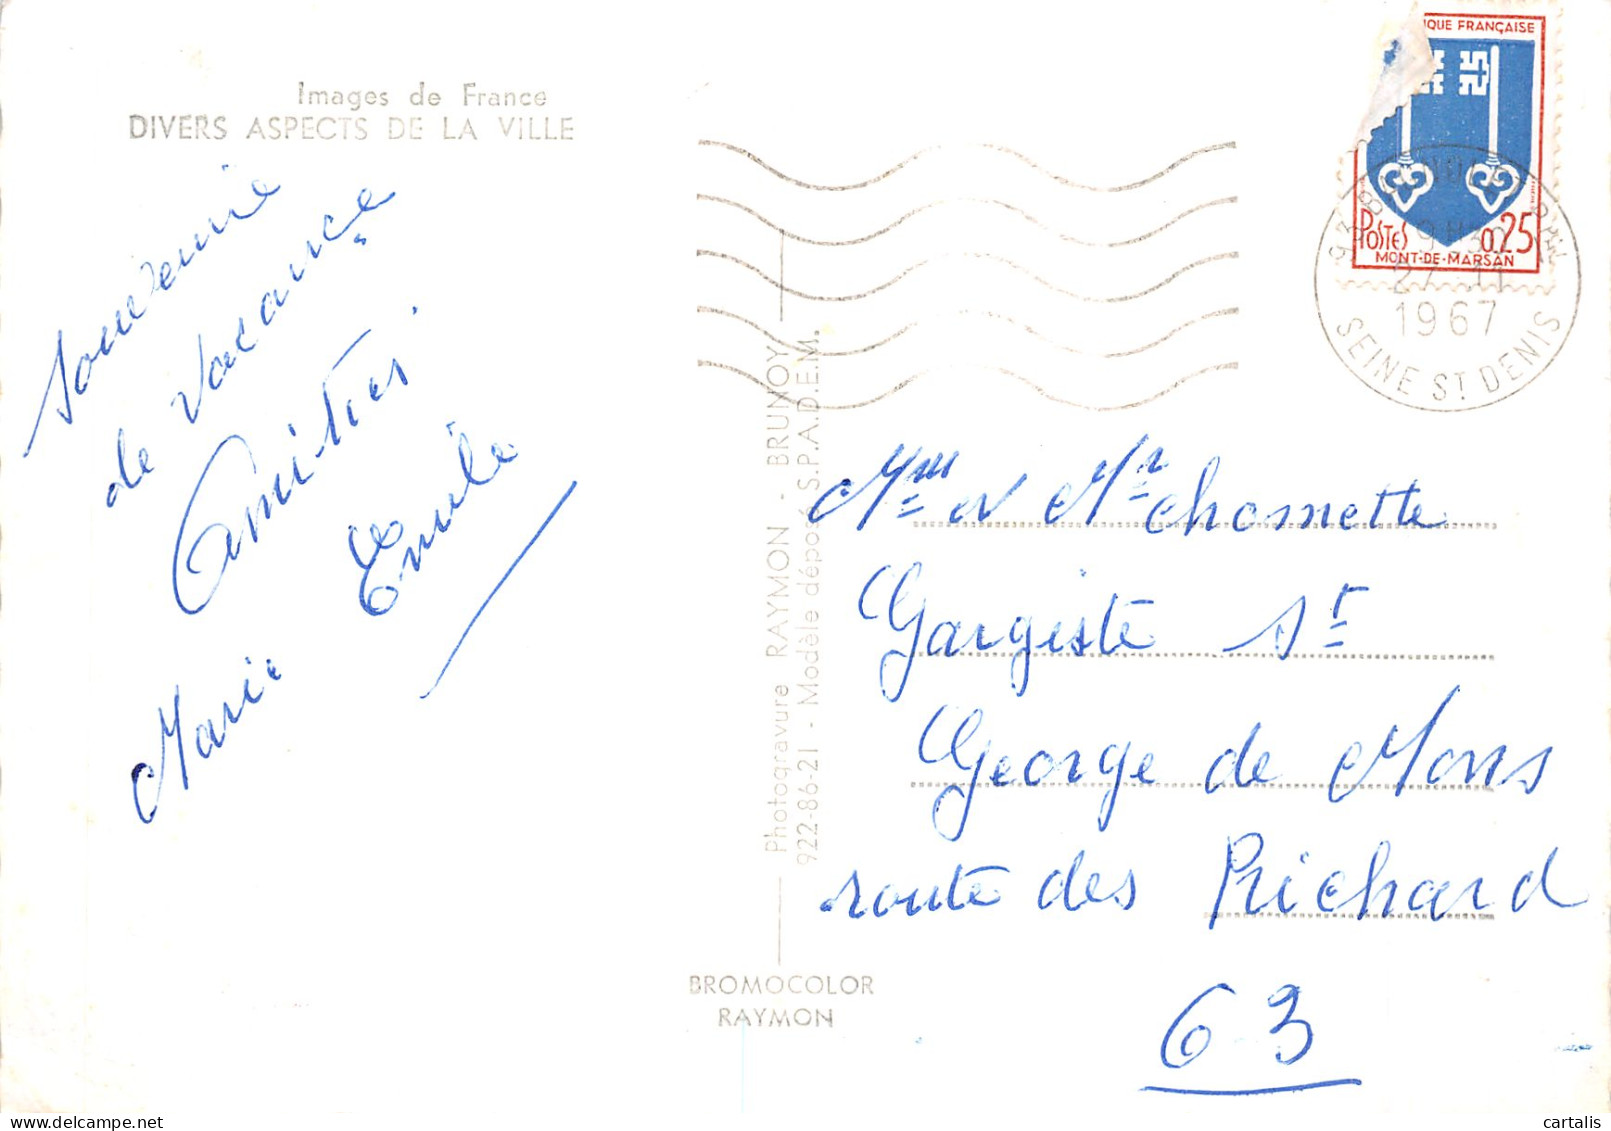 Images de France
DIVERS ASPECTS DE LA VILLE
Souvenire
de Vacançe
Amitiés
Emile
Marie
Photogravure RAYMON - BRUNOY
922-86-21 - Modèle déposé S.P.A.D.E.M.
BROMOCOLOR
RAYMON
IQUE FRANÇAISE
POSTES 0,25
MONT-DE-MARSAN
93 BAGNOLET PPAL
9H30
27-11
1967
SEINE ST DENIS
Mme et Mr Chomette
Gargiste St
George de Mons
route des Richard
63
cartalis